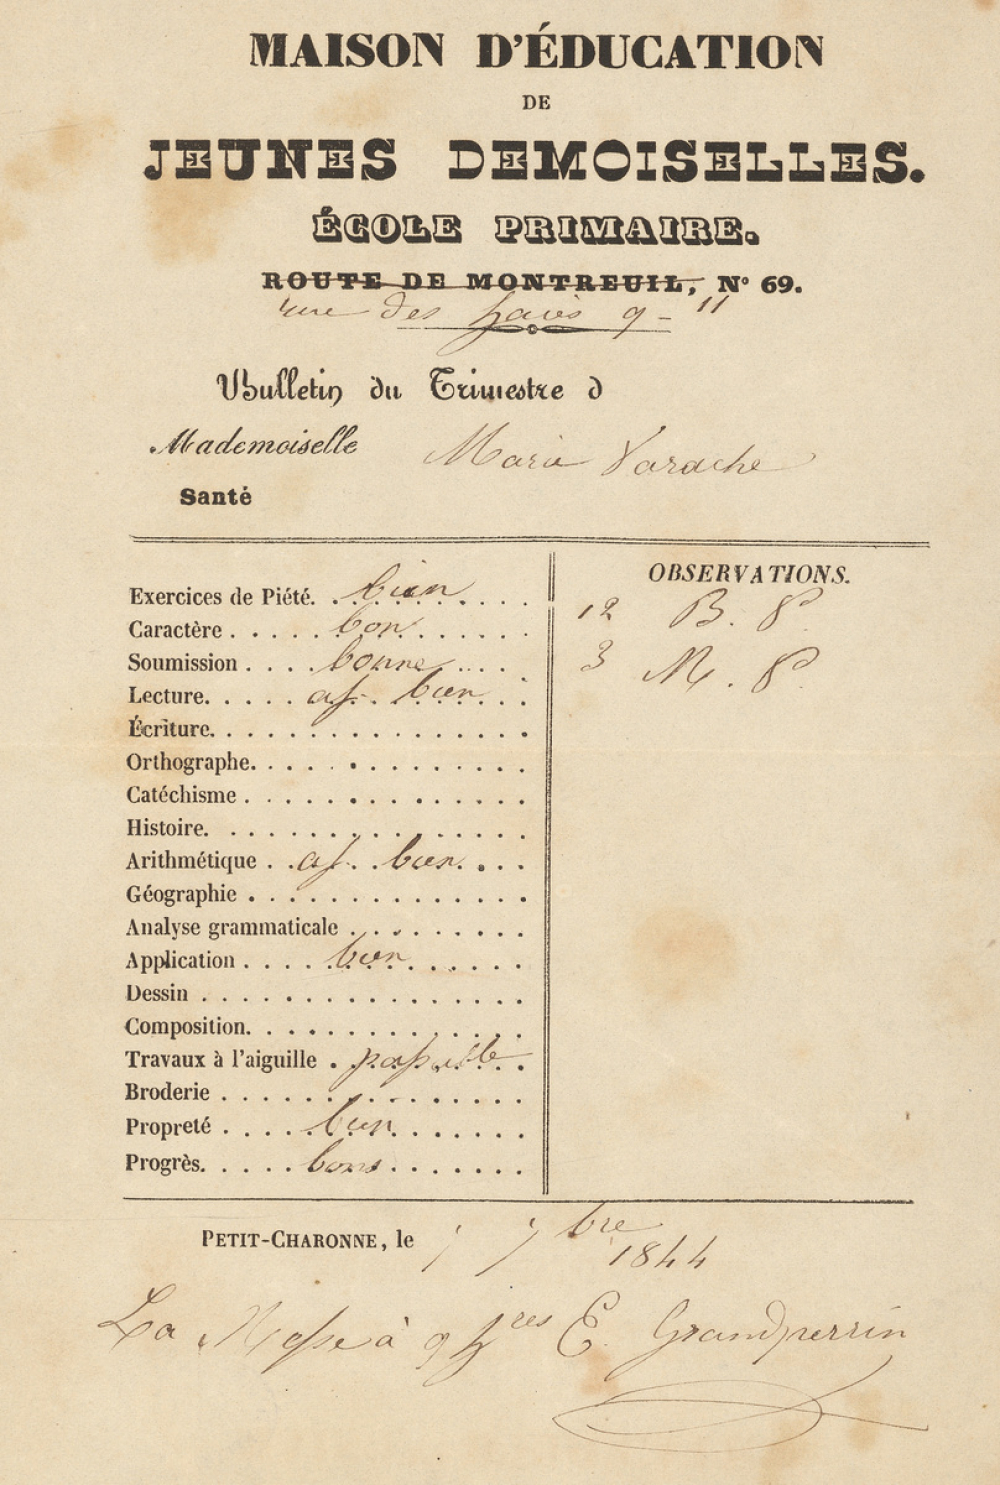 MAISON D'ÉDUCATION
DE
JEUNES DEMOISELLES.
ÉCOLE PRIMAIRE.
ROUTE DE MONTREUIL, Nº 69.
rue des haies 9 - 11
Bulletin du Trimestre d
Mademoiselle Marie Varache
Santé
OBSERVATIONS.
Exercices de Piété. bien
Caractère bon
Soumission bonne
Lecture. ass. bien
Écriture.
Orthographe.
Catéchisme
Histoire.
Arithmétique ass. bien
Géographie
Analyse grammaticale
Application bien
Dessin
Composition.
Travaux à l'aiguille passable
Broderie
Propreté bien
Progrès. bons
12 B. P.
3 M. P.
PETIT-CHARONNE, le 7bre
1844
La Messe à 9 hres E. Grandperrin